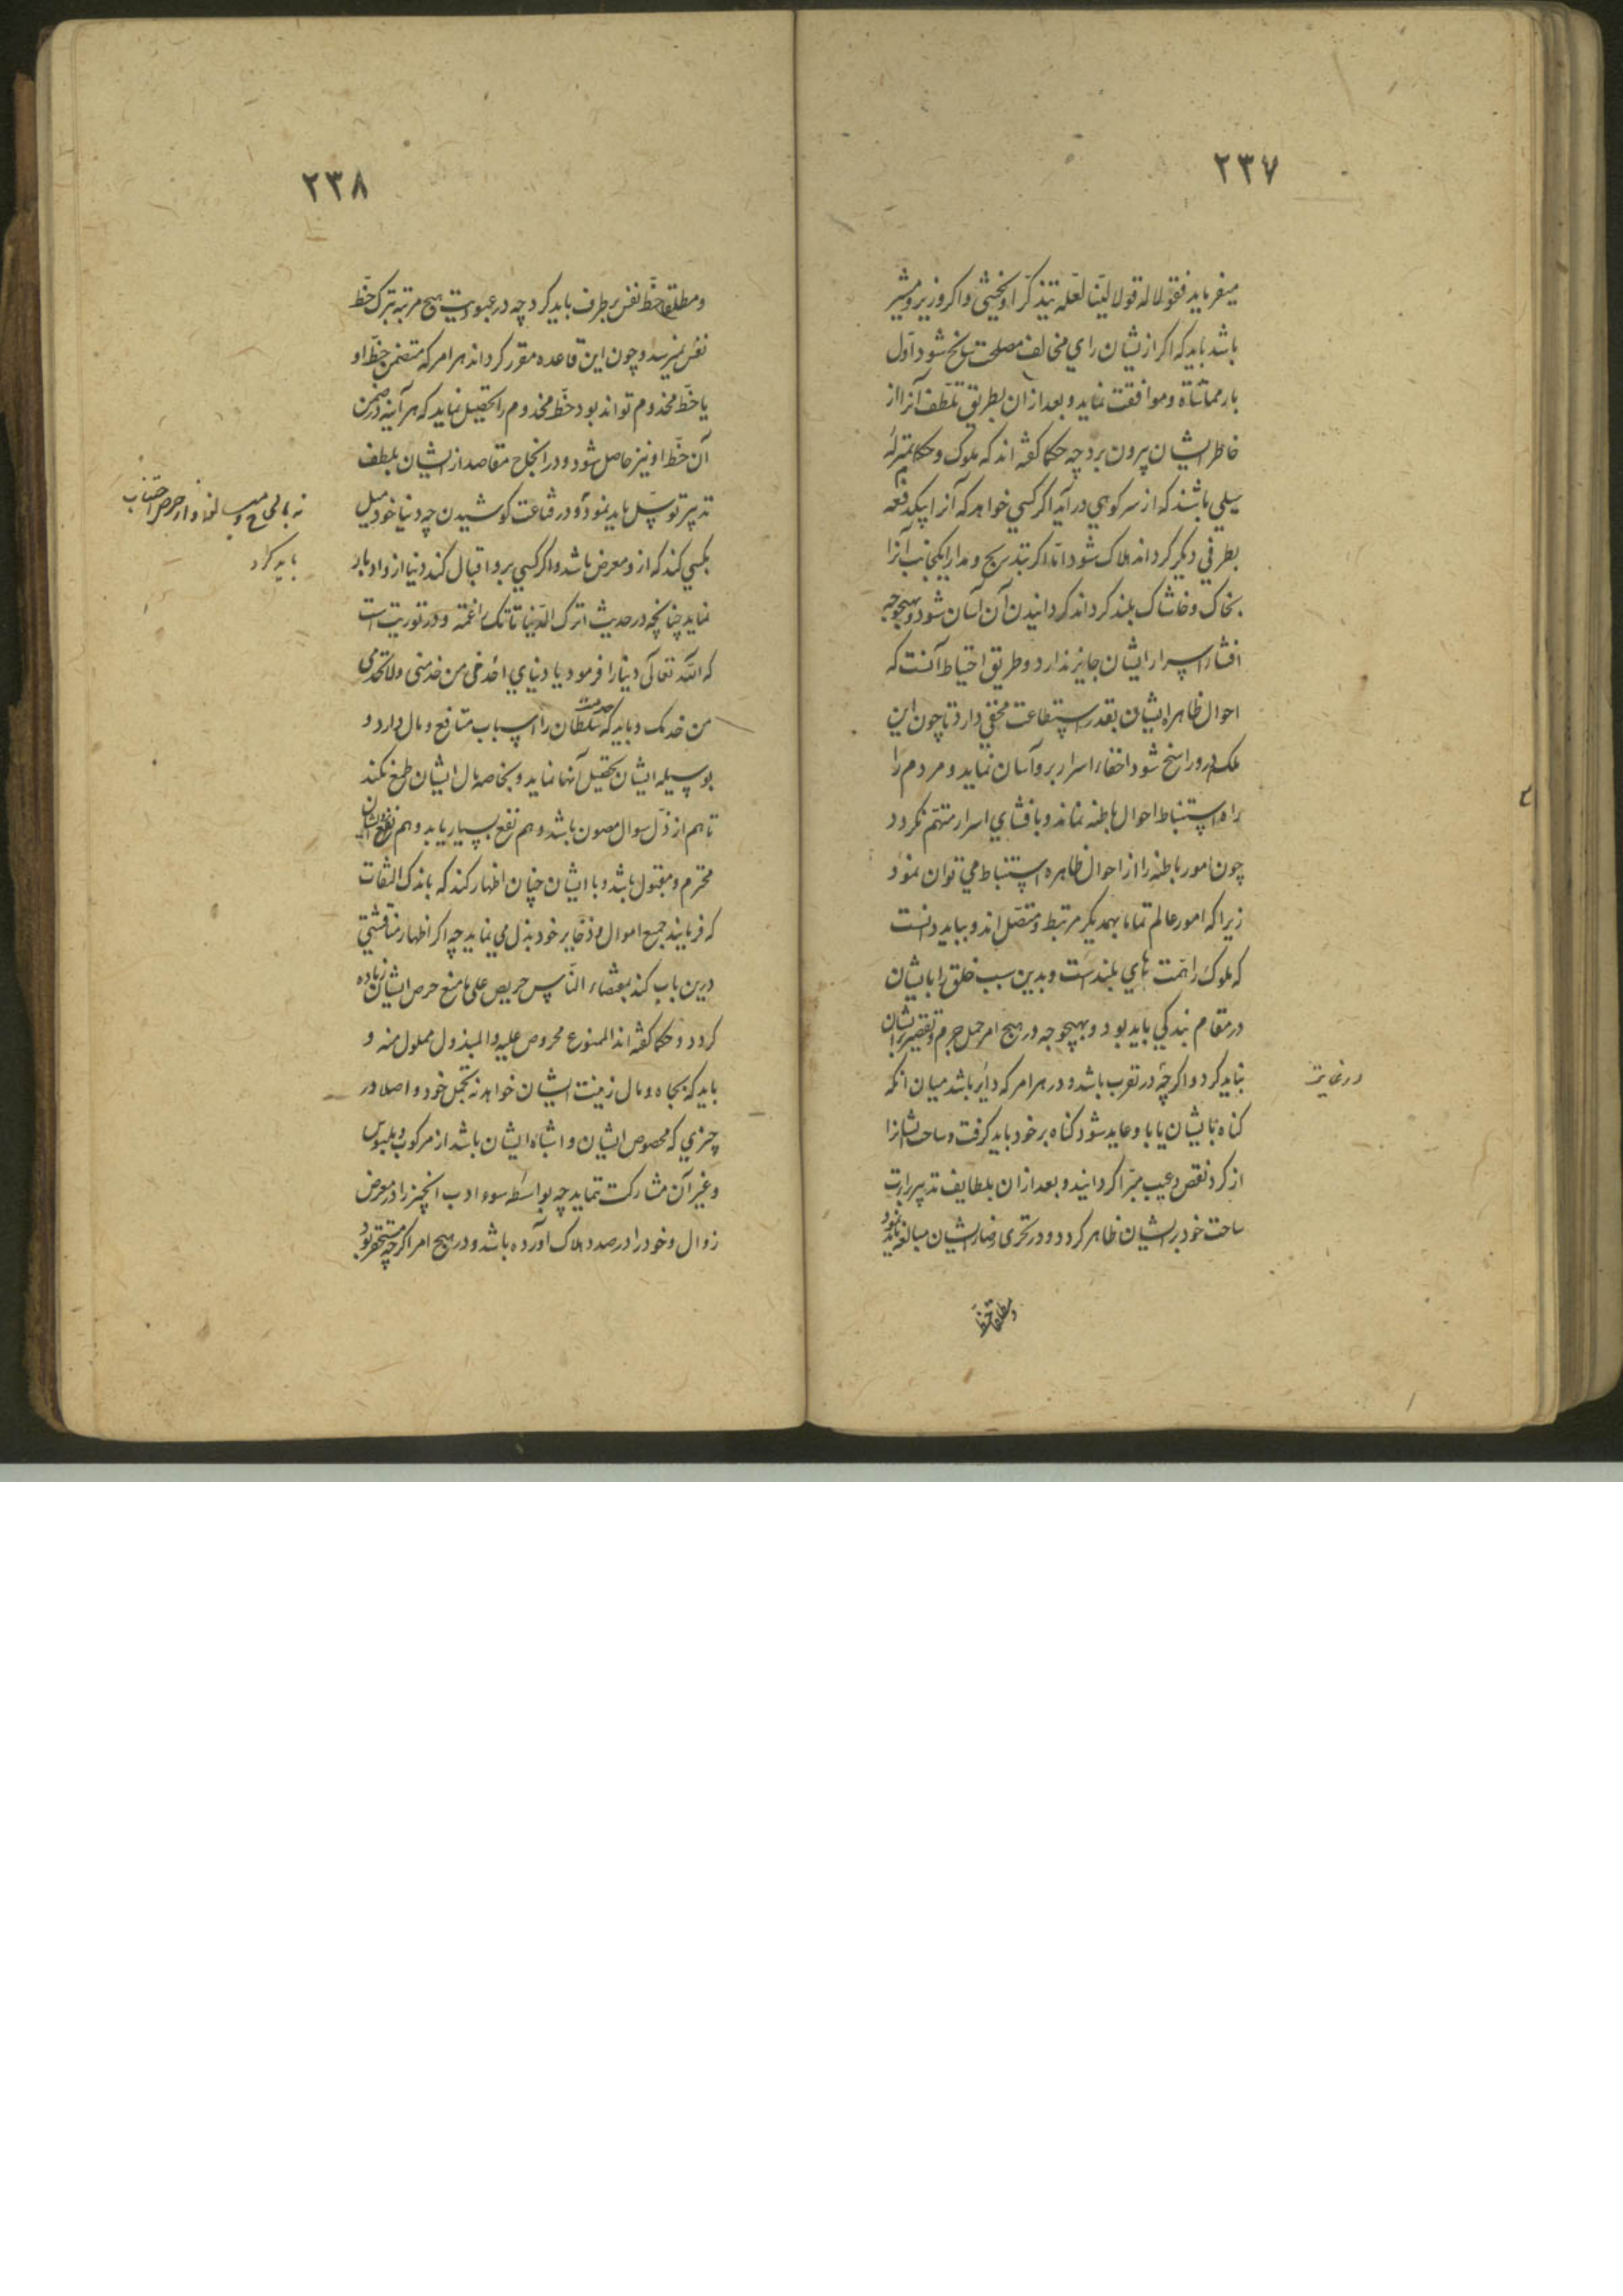 ۲۳۷
میفرماید فقولا له قولا لینا لعله یتذکر او یخشی و اکر وزیر و مشیر
باشد باید که اکر از یشان رای مخالف مصلحت سانح شود اول
بار مماشاة و موافقت نماید و بعد از ان بطریق تلطف آنرا از
خاطر ایشان بیرون برد چه حکما کفته اند که ملوک و حکام بمنزله
سیلی باشند که از سر کوهی در آید اکر کسی خواهد که آنرا بیکدفعه
بطرفی دیکر کرداند هلاک شود اما اکر بتدریج و مدارا یکجانب آنرا
بخاک و خاشاک بلند کرداند کردانیدن آن آسان شود و بهیچوجه
افشاء اسرار ایشان جایز ندارد و طریق احتیاط آنست که
احوال ظاهره ایشان بقدر استطاعت مخفی دارد تا چون این
ملکه درو راسخ شود اخفاء اسرار برو آسان نماید و مردم را
راه استنباط احوال باطنه نماند و بافشای اسرار متهم نکردد
چون امور باطنه را از احوال ظاهره استنباط می توان نمود
زیرا که امور عالم تماما بهمدیکر مرتبط و متصل اند و بباید دانست
که ملوک را همت های بلندست و بدین سبب خلق را بایشان
در مقام بندکی باید بود و بهیچوجه در هیچ امر حمل جرم و تقصیر برایشان
نباید کرد و اکرچه در تقرب باشد و در هر امر که دایر باشد میان انکه
در غایت
کناه بایشان یا با و عاید شود کناه بر خود باید کرفت و ساحت ایشانرا
از کرد نقص و عیب مبرا کردانید و بعد از ان بلطایف تدبیر براءت
ساحت خود بر ایشان ظاهر کردد و در تحری رضاء ایشان مبالغه باید نمود
و مطلقا حظ
۲۳۸
و مطلقا حظ نفس بر طرف باید کرد چه در عبودیت هیچ مرتبه بترک حظ
نفس نمیرسد و چون این قاعده مقرر کرداند هر امر که متضمن حظ او
یا حظ مخدوم تواند بود حظ مخدوم را تحصیل نماید که هر آینه در ضمن
آن حظ او نیز حاصل شود و در انجاح مقاصد از ایشان بلطف
تدبیر توسل باید نمود و در قناعت کوشیدن چه دنیا خود میل
نه بالحاح و مبالغه و از حرص اجتناب
باید کرد
بکسی کند که از و معرض باشد و اکر کسی برو اقبال کند دنیا از و ادبار
نماید چنانچه در حدیث اترک الدنیا تاتک راغمة و در توریت است
که الله تعالی دنیا را فرمود یا دنیای اخدمی من خدمنی ولا تخدمی
من خدمک و باید که خدمت سلطان را اسباب منافع و مال دارد و
بوسیله ایشان تحصیل آنها نماید و بخاصه مال ایشان طمع نکند
تا هم از ذل سوال مصون باشد و هم نفع بسیار یابد و هم نزد ایشان
محترم و مقبول باشد و با ایشان چنان اظهار کند که باندک التفات
که فرمایند جمیع اموال و ذخایر خود بذل می نماید چه اکر اظهار مناقشتی
درین باب کند بمقتضاء الناس حریص علی ما منع حرص ایشان زیاده
کردد و حکما کفته اند الممنوع محروص علیه و المبذول مملول منه و
باید که بجاه و مال زینت ایشان خواهد نه تجمل خود و اصلا در
چیزی که مخصوص ایشان و اشباه ایشان باشد از مرکوب و ملبوس
و غیر آن مشارکت ننماید چه بواسطه سوء ادب انچیز را در معرض
زوال و خود را در صدد هلاک آورده باشد و در هیچ امر اکرچه مستحقر بود